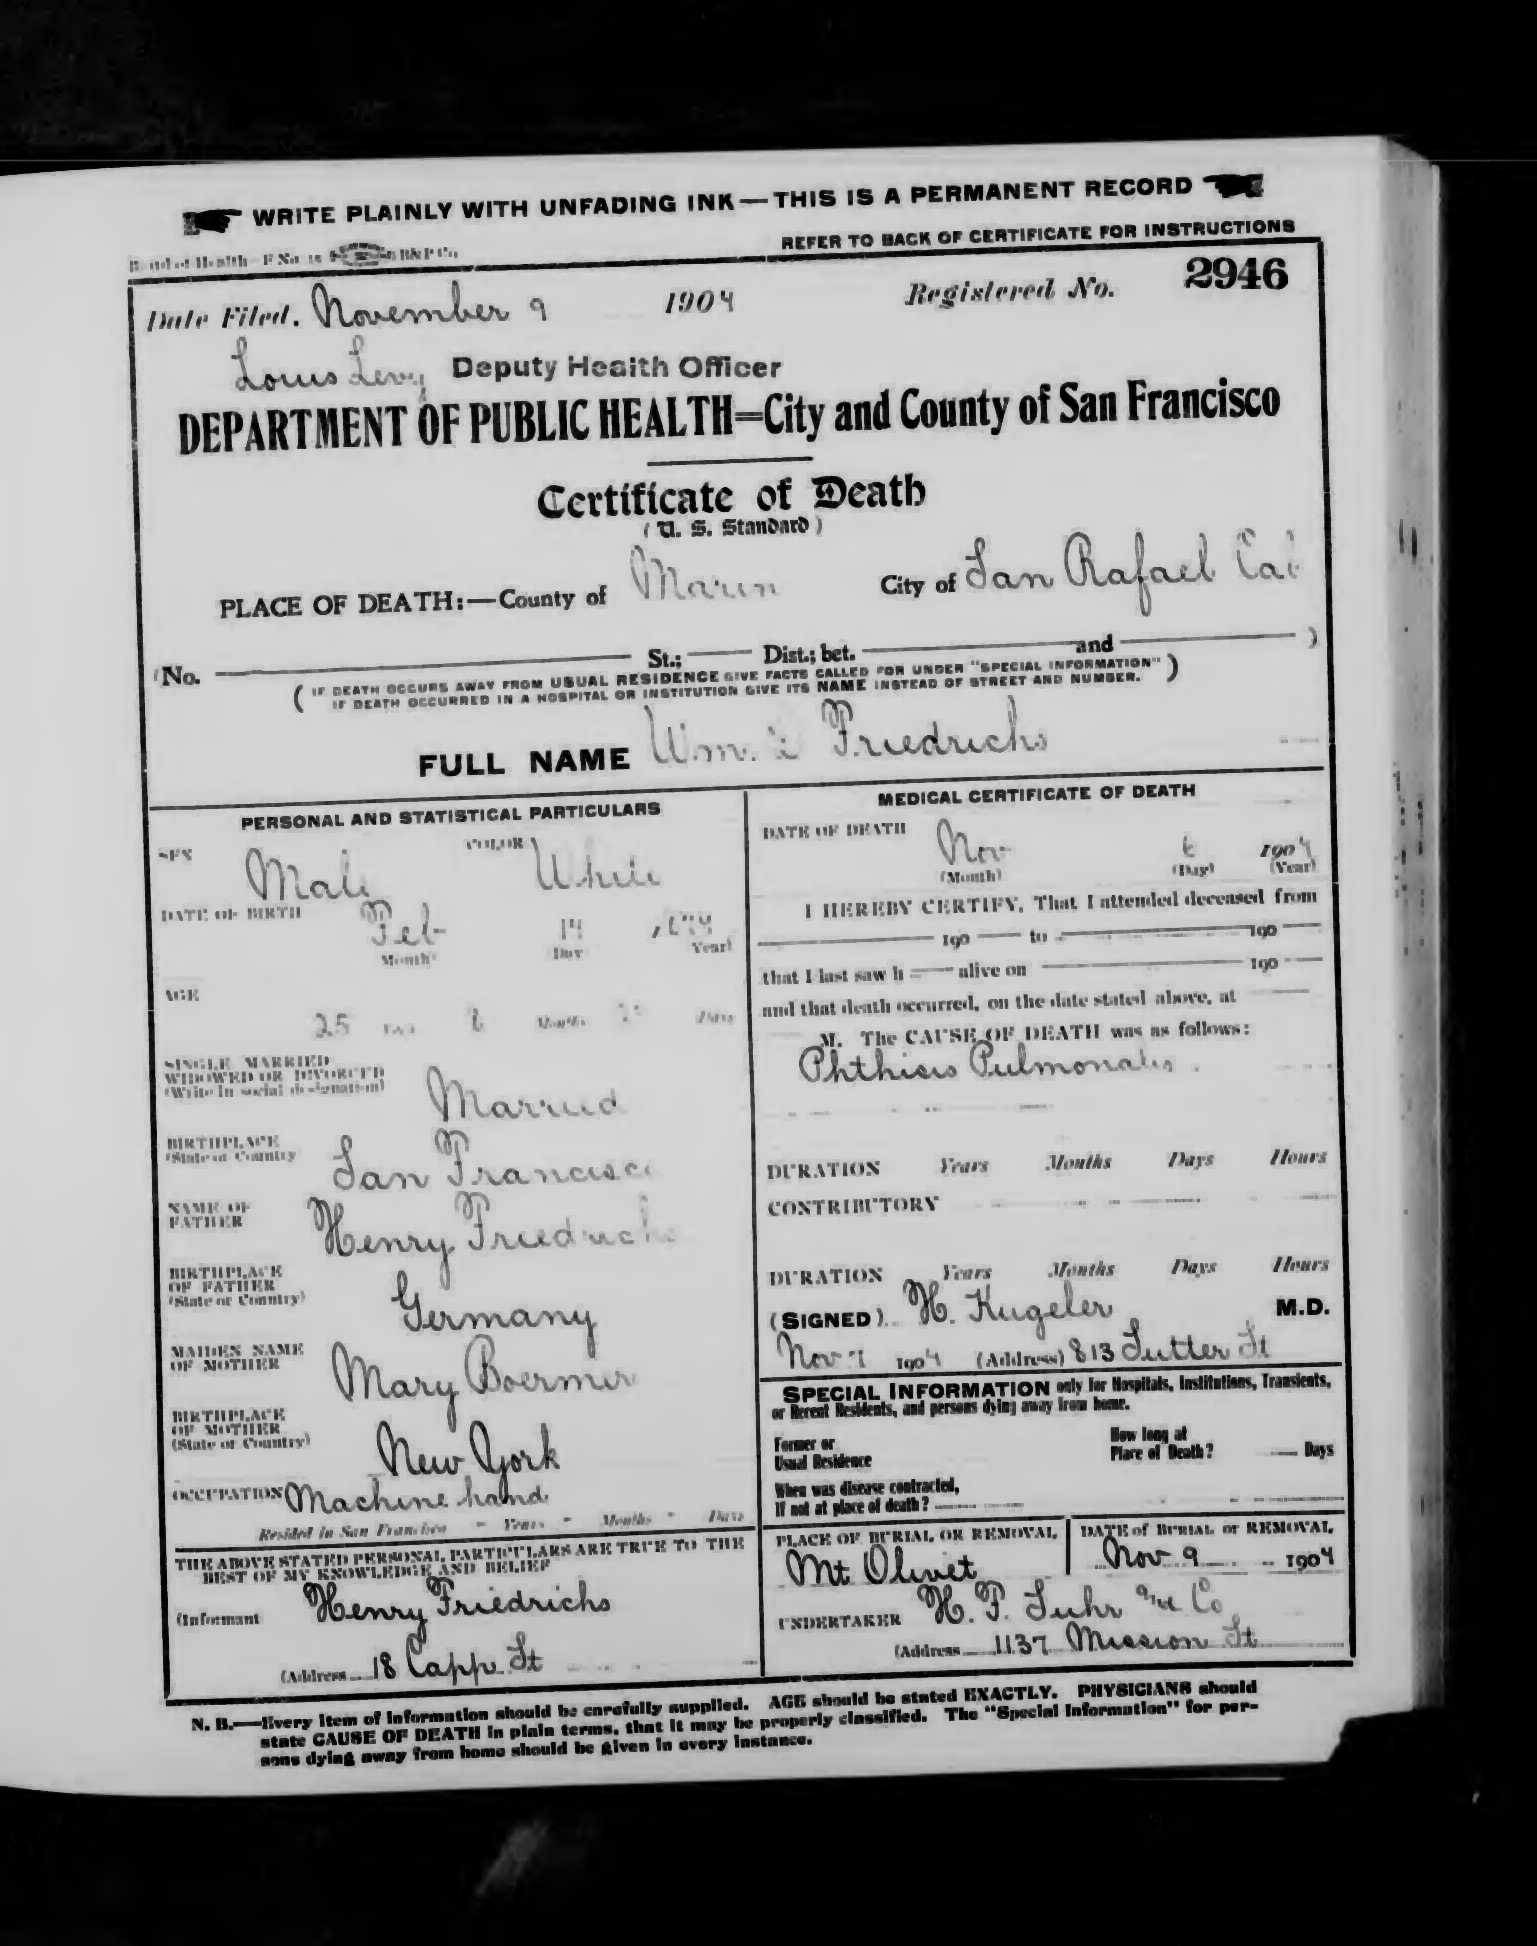 WRITE PLAINLY WITH UNFADING INK — THIS IS A PERMANENT RECORD
REFER TO BACK OF CERTIFICATE FOR INSTRUCTIONS
Board of Health—F No. 18 B&P Co
Date Filed. November 9 1904 Registered No. 2946
Louis Levy Deputy Health Officer
DEPARTMENT OF PUBLIC HEALTH=City and County of San Francisco
Certificate of Death
(U. S. Standard)
PLACE OF DEATH:—County of Marin City of San Rafael Cal
(No. St.; Dist.; bet. and )
(IF DEATH OCCURS AWAY FROM USUAL RESIDENCE GIVE FACTS CALLED FOR UNDER "SPECIAL INFORMATION"
IF DEATH OCCURRED IN A HOSPITAL OR INSTITUTION GIVE ITS NAME INSTEAD OF STREET AND NUMBER.)
FULL NAME Wm. Friedrichs
PERSONAL AND STATISTICAL PARTICULARS
SEX Male COLOR White
DATE OF BIRTH Feb 14
Month Day Year)
AGE
25 Months Days
SINGLE MARRIED
WIDOWED OR DIVORCED
(Write in social designation) Married
BIRTHPLACE
(State or Country San Francisco
NAME OF
FATHER Henry Friedrichs
BIRTHPLACE
OF FATHER
(State or Country) Germany
MAIDEN NAME
OF MOTHER Mary Boermer
BIRTHPLACE
OF MOTHER
(State or Country) New York
OCCUPATION Machine hand
Resided in San Francisco - Years - Months - Days
THE ABOVE STATED PERSONAL PARTICULARS ARE TRUE TO THE
BEST OF MY KNOWLEDGE AND BELIEF
(Informant Henry Friedrichs
(Address 18 Capp St
MEDICAL CERTIFICATE OF DEATH
DATE OF DEATH Nov 6 1904
(Month) (Day) (Year)
I HEREBY CERTIFY, That I attended deceased from
190 to 190
that I last saw h alive on 190
and that death occurred, on the date stated above, at
M. The CAUSE OF DEATH was as follows:
Phthisis Pulmonalis
DURATION Years Months Days Hours
CONTRIBUTORY
DURATION Years Months Days Hours
(SIGNED) H. Kugeler M.D.
Nov 7 1904 (Address) 813 Sutter St
SPECIAL INFORMATION only for Hospitals, Institutions, Transients,
or Recent Residents, and persons dying away from home.
Former or
Usual Residence
How long at
Place of Death? Days
When was disease contracted,
If not at place of death?
PLACE OF BURIAL OR REMOVAL
Mt Olivet
DATE of BURIAL or REMOVAL
Nov 9 1904
UNDERTAKER H. F. Suhr and Co
(Address 1137 Mission St
N. B.—Every item of information should be carefully supplied. AGE should be stated EXACTLY. PHYSICIANS should
state CAUSE OF DEATH in plain terms, that it may be properly classified. The "Special Information" for per-
sons dying away from home should be given in every instance.